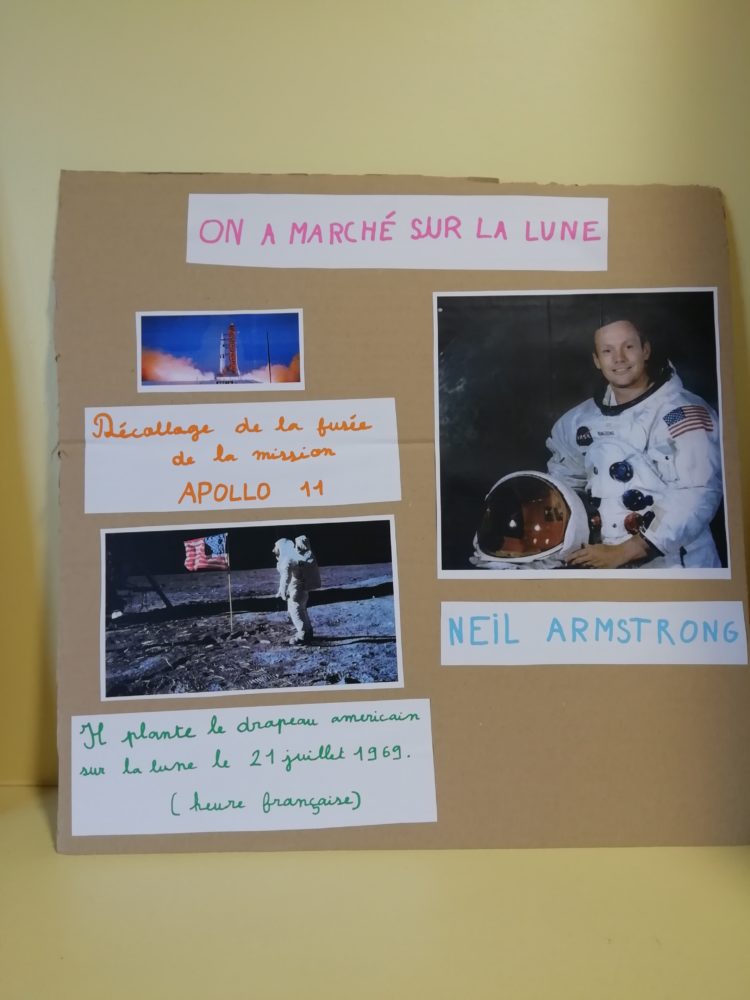 ON A MARCHÉ SUR LA LUNE
Décollage de la fusée
de la mission
APOLLO 11
NEIL ARMSTRONG
Il plante le drapeau americain
sur la lune le 21 juillet 1969.
(heure française)